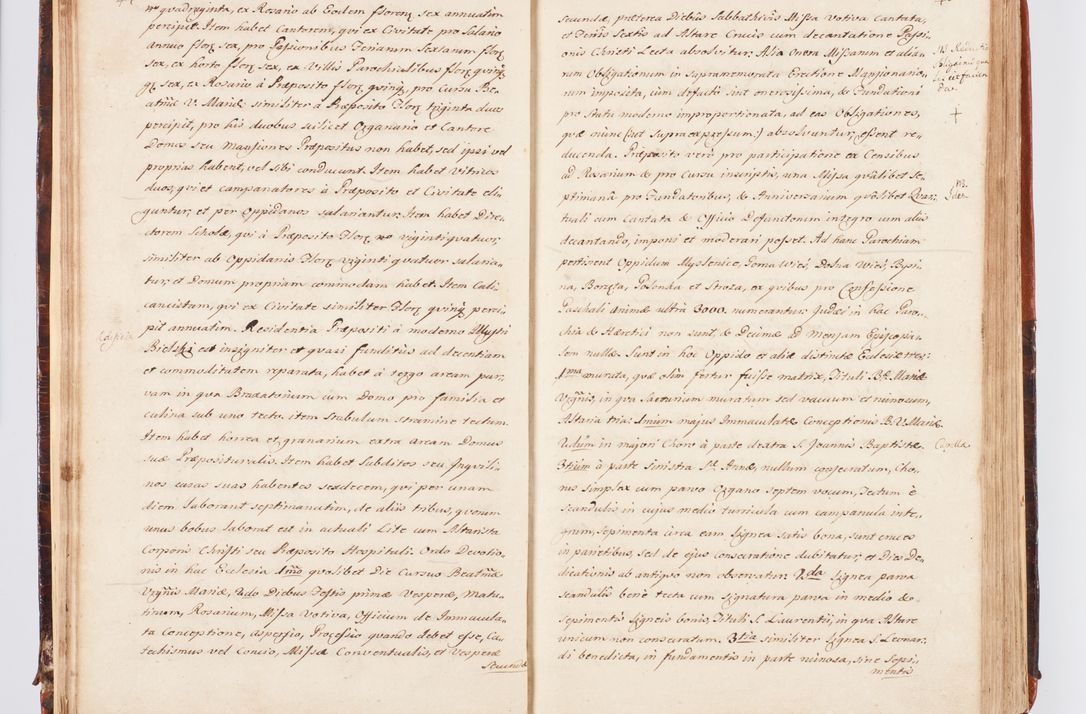 quadraginta, ex Rosario ab Eodem floren sex annuatim
percipit. Item habet Cantorem, qui ex Civitate pro Salario
annuo flor sex, pro Passionibus Feriarum Sextarum flor
sex, ex horto flor sex, ex Villis Parochialibus flor quinq
gr sex, ex Rosario à Præposito flor quinq, pro Cursu Be-
atmæ V. Mariæ similiter à Præposito flor triginta duos
percipit, pro his duobus scilicet Organario et Cantore
Domus seu Mansiones Præpositus non habet, sed ipsi vel
proprias habent, vel sibi conducunt. Item habet Vitricos
duos, qui et campanatores à Præposito et Civitate eli-
guntur, et per Oppidanos salariantur. Item habet Dire-
ctorem Scholæ, qui à Præposito flor viginti quatuor,
similiter ab Oppidanis flor viginti quatuor salaria-
tur, et Domum propriam commodam habet. Item Cali-
cancistam, qui ex Civitate similiter flor quinq perci-
pit annuatim. Residentia Præpositi à moderno Illustri
Bielski est insigniter et quasi funditus ad decentiam
et commoditatem reparata, habet à tergo aream par-
vam in qua Braxatorium cum Domo pro familia et
culina sub uno tecto, item Stabulum stramine tectum.
Item habet horrea et granarium extra aream Domus
suæ Præposituralis. Item habet Subditos seu Inquili-
nos casas suas habentes sexdecem, qui per unam
diem laborant septimanatim, de aliis tribus, quorum
unus bobus laborat est in actuali Lite cum Altarista
Corporis Christi seu Præposito Hospitali. Ordo Devotio-
nis in hac Ecclesia 1mo quolibet Die Cursus Beatmæ
Virginis Mariæ, 2do Diebus Festis primæ Vesperæ, Matu-
tinum, Rosarium, Missa Votiva, Officium de Immacula-
ta Conceptione, aspersio, Processio quando debet esse, Ca-
techismus vel Concio, Missa Conventualis, et Vesperæ
Secundæ
secundæ, præterea Diebus Sabbathivis Missa Votiva Cantata,
et Feriis Sextis ad Altare Crucis cum decantatione Passi-
onis Christi Lecta absolvitur. Alia Onera Missarum et alia-
rum Obligationum in supramemorata Erectione Mansionario-
rum imposita, cum defacto sint onerosissima, & Fundationi
pro statu moderno improportionata, ad eas Obligationes,
quæ nunc (:ut supra expressum:) absolvuntur, essent re-
ducenda. Præposito verò pro participatione ex Censibus
ad Rosarium & pro Cursu inscriptis, una Missa qualibet Se-
ptimanâ pro Fundatoribus, & Anniversarium qualibet Quar-
tuali cum Cantata & Officio Defunctorum integro cum aliis
decantando, imponi et moderari posset. Ad hanc Parochiam
pertinent Oppidum Myslenice, Gorna Wies, Dolna Wies, Bysi-
na, Borzęta, Polanka et Stroza, ex quibus pro Confessione
Paschali animæ ultra 3000. numerantur, Judæi in hac Paro-
chia & Hæretici non sunt, & Decimæ ad Mensam Episcopa-
lem nullæ. Sunt in hoc Oppido et aliæ distinctæ Ecclesiæ tres:
1ma murata, quæ olim fertur fuisse matrix, Tituli B. Mariæ
Virginis, in qua Sacrarium muratum sed vacuum et ruinosum,
Altaria tria: 1mum majus Immaculatæ Conceptionis B. V. Mariæ
2dum in majori Choro à parte dextra S. Joannis Baptistæ
3tium à parte sinistra Stæ Annæ, nullum consecratum, Cho-
rus simplex cum parvo Organo septem vocum, Tectum è
scandulis in cujus medio turricula cum campanula inte-
grum, Sepimenta circa eam lignea satis bona, sunt cruces
in parietibus, sed de ejus consecratione dubitatur, et Dies De-
dicationis ab antiquo non observatur. 2da Lignea parva
scandulis benè tecta cum signatura parva in medio &
Sepimentis ligneis bonis, Tituli S. Laurentii, in qua Altare
unicum non consecratum. 3tia similiter Lignea S. Leonar-
di benedicta, in fundamentis in parte ruinosa, sine Sepi-
mentis
Capella